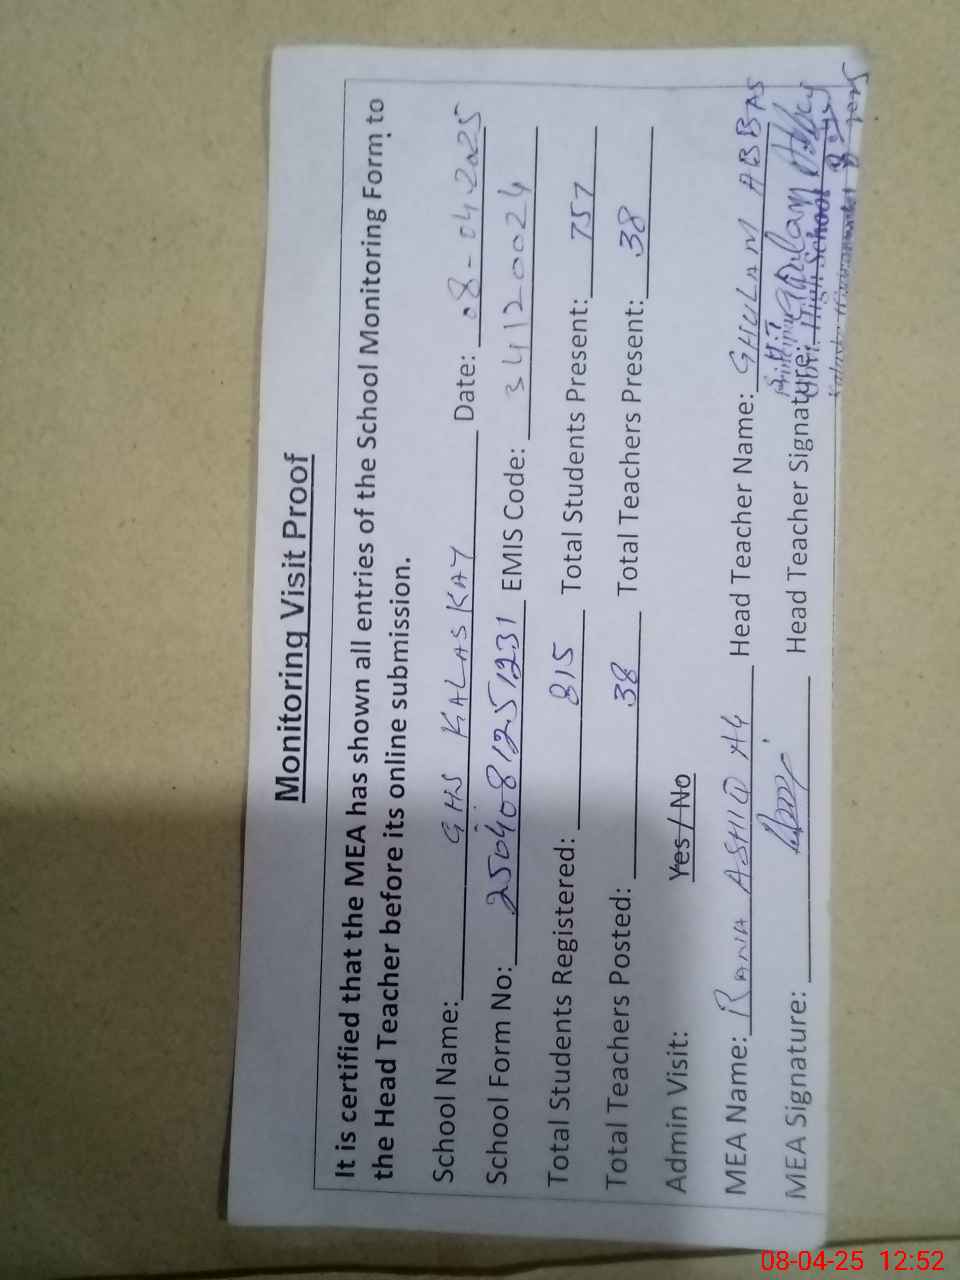 Monitoring Visit Proof
It is certified that the MEA has shown all entries of the School Monitoring Form to
the Head Teacher before its online submission.
School Name: GHS KALASKAY Date: 08-04-2025
School Form No: 2504081251231 EMIS Code: 34120024
Total Students Registered: 815 Total Students Present: 757
Total Teachers Posted: 38 Total Teachers Present: 38
Admin Visit: Yes / No
MEA Name: RANA ASHIQ Head Teacher Name: GHULAM ABBAS
MEA Signature: Head Teacher Signature:
High School
08-04-25 12:52